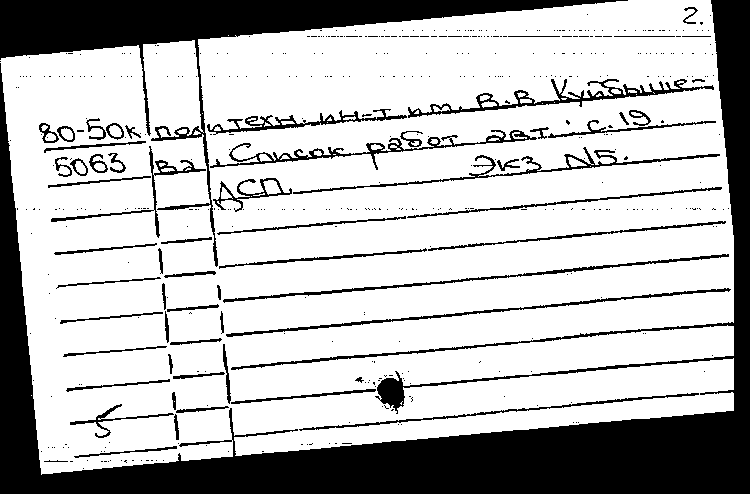 2.
80-50к политехн. ин-т им. В.В. Куйбыше-
5063 ва. Список работ авт.: с. 19.
ДСП. Экз N5.
5